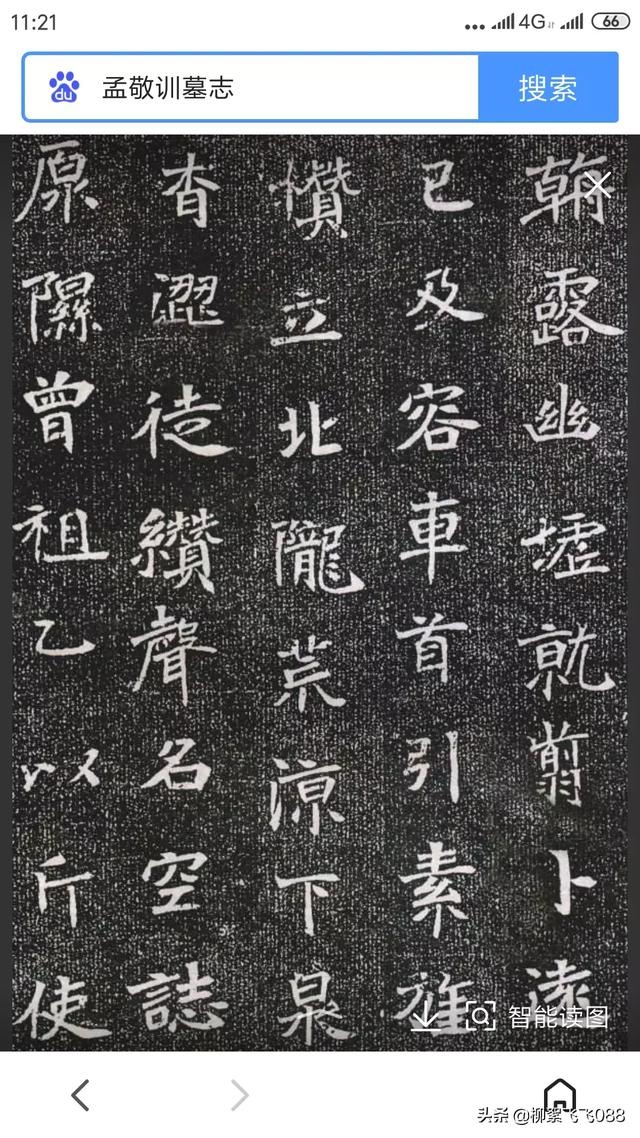 11:21
4G
66
du 孟敬训墓志
搜索
翰露幽墟就翦卜遠
已及容車首引素旌
攢立北隴荒涼下泉
杳澀徒纘聲名空誌
原隰曾祖乙以斤使
智能读图
头条 @柳絮飞飞088